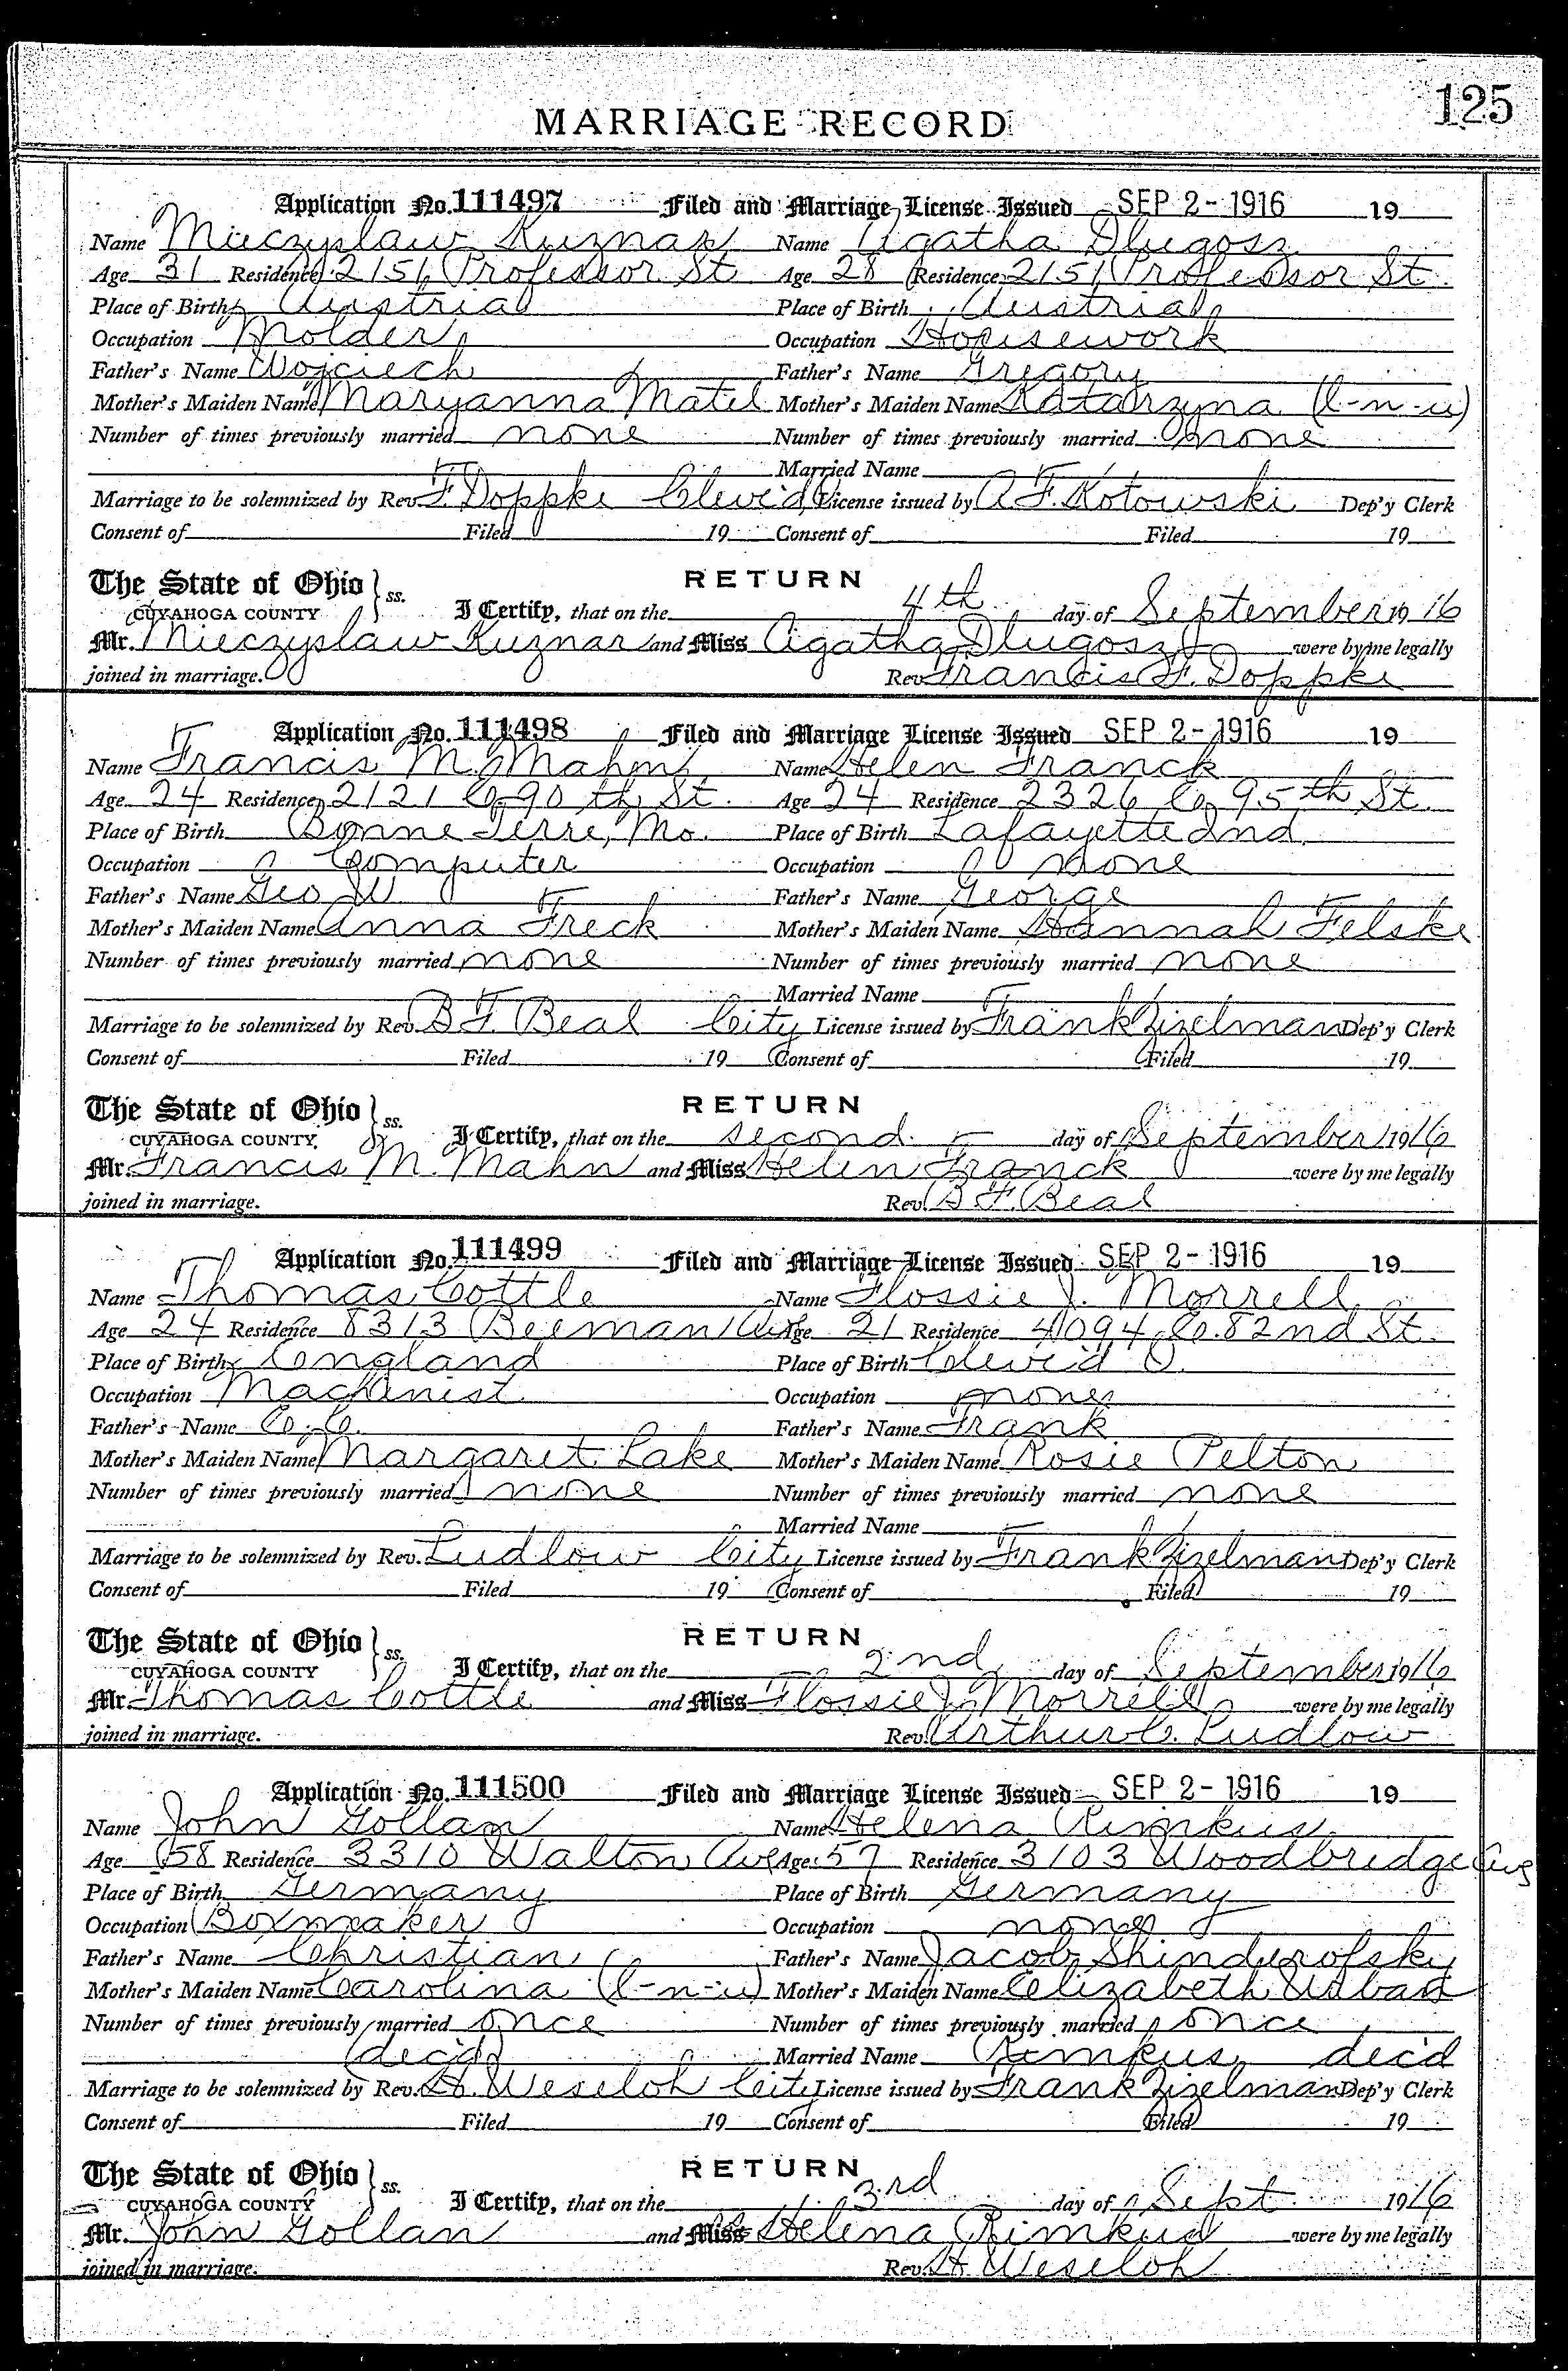 125
MARRIAGE RECORD
Application No. 111497 Filed and Marriage License Issued SEP 2-1916 19
Name Mieczyslaw Kuznar Name Agatha Dlugosz
Age 31 Residence 2151 Professor St Age 28 Residence 2151 Professor St.
Place of Birth Austria Place of Birth Austria
Occupation Molder Occupation Housework
Father's Name Wojciech Father's Name Gregory
Mother's Maiden Name Maryanna Matel Mother's Maiden Name Katarzyna (l-n-u)
Number of times previously married none Number of times previously married none
Married Name
Marriage to be solemnized by Rev. F. Doppke Clevel'd O License issued by A F. Kotowski Dep'y Clerk
Consent of Filed 19 Consent of Filed 19
The State of Ohio } ss. RETURN
CUYAHOGA COUNTY I Certify, that on the 4th day of September 1916
Mr. Mieczyslaw Kuznar and Miss Agatha Dlugosz were by me legally
joined in marriage. Rev. Francis F. Doppke
Application No. 111498 Filed and Marriage License Issued SEP 2-1916 19
Name Francis M. Mahn Name Helen Franck
Age 24 Residence 2121 E. 90 th St. Age 24 Residence 2326 E 95th St.
Place of Birth Bonne Terre, Mo. Place of Birth Lafayette Ind.
Occupation Computer Occupation none
Father's Name Geo W Father's Name George
Mother's Maiden Name Anna Freck Mother's Maiden Name Hannah Felske
Number of times previously married none Number of times previously married none
Married Name
Marriage to be solemnized by Rev. B F. Beal City License issued by Frank Zizelman Dep'y Clerk
Consent of Filed 19 Consent of Filed 19
The State of Ohio } ss. RETURN
CUYAHOGA COUNTY I Certify, that on the second day of September 1916
Mr. Francis M. Mahn and Miss Helen Franck were by me legally
joined in marriage. Rev. B F. Beal
Application No. 111499 Filed and Marriage License Issued SEP 2-1916 19
Name Thomas Cottle Name Flossie J. Morrell
Age 24 Residence 8313 Beeman Ave Age 21 Residence 4094 E. 82nd St.
Place of Birth England Place of Birth Clevel'd O.
Occupation Machinist Occupation none
Father's Name E. E. Father's Name Frank
Mother's Maiden Name Margaret Lake Mother's Maiden Name Rosie Pelton
Number of times previously married none Number of times previously married none
Married Name
Marriage to be solemnized by Rev. Ludlow City License issued by Frank Zizelman Dep'y Clerk
Consent of Filed 19 Consent of Filed 19
The State of Ohio } ss. RETURN
CUYAHOGA COUNTY I Certify, that on the 2nd day of September 1916
Mr. Thomas Cottle and Miss Flossie J. Morrell were by me legally
joined in marriage. Rev. Arthur C. Ludlow
Application No. 111500 Filed and Marriage License Issued SEP 2-1916 19
Name John Gollan Name Helena Rimkus
Age 58 Residence 3310 Walton Ave Age 57 Residence 3103 Woodbridge Ave
Place of Birth Germany Place of Birth Germany
Occupation Boxmaker Occupation none
Father's Name Christian Father's Name Jacob Shinderofsky
Mother's Maiden Name Carolina (l-n-u) Mother's Maiden Name Elizabeth Urban
Number of times previously married once Number of times previously married once
dec'd Married Name Rimkus dec'd
Marriage to be solemnized by Rev. H. Weseloh City License issued by Frank Zizelman Dep'y Clerk
Consent of Filed 19 Consent of Filed 19
The State of Ohio } ss. RETURN
CUYAHOGA COUNTY I Certify, that on the 3rd day of Sept 1916
Mr. John Gollan and Miss Helena Rimkus were by me legally
joined in marriage. Rev. H. Weseloh